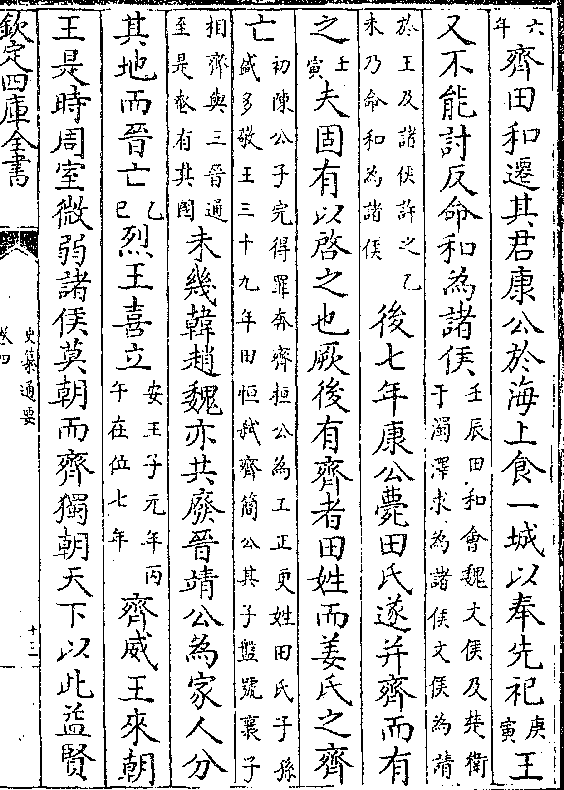 六年齊田和遷其君康公於海上食一城以奉先祀庚寅王
又不能討反命和為諸侯壬辰田和會魏文侯及楚衛于濁澤求為諸侯文侯為請
於王及諸侯許之乙未乃命和為諸侯後七年康公薨田氏遂并齊而有
之壬寅夫固有以啓之也厥後有齊者田姓而姜氏之齊
亡初陳公子完得罪奔齊桓公為工正更姓田氏子孫盛多敬王三十九年田恒弑齊簡公其子盤號襄子
相齊與三晉通至是遂有其國未幾韓趙魏亦共廢晉靖公為家人分
其地而晉亡乙巳烈王喜立安王子元年丙午在位七年齊威王來朝
王是時周室微弱諸侯莫朝而齊獨朝天下以此益賢
欽定四庫全書
史纂通要
卷四
十三